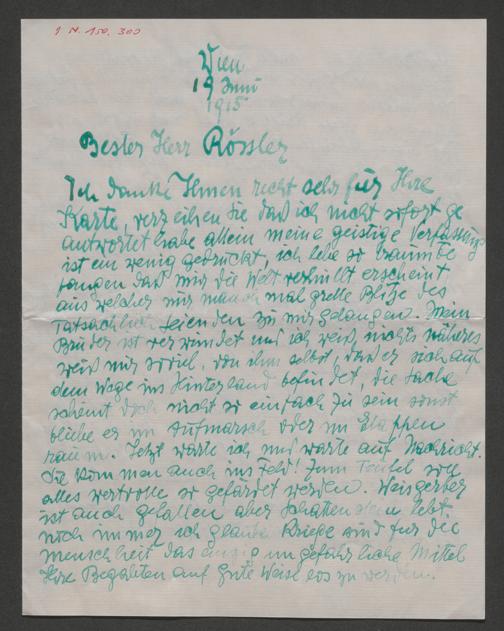 I N. 150.300
Wien
19 Juni
1915
Bester Herr Rössler
Ich danke Ihnen recht sehr für Ihre
Karte, verzeihen Sie daß ich nicht sofort ge
antwortet habe allein meine geistige Verfassung
ist ein wenig gedrückt, ich lebe so traumbe
fangen daß mir die Welt verhüllt erscheint
aus welcher mir manch mal grelle Blitze des
Tatsächlich zu mir gelangen. Mein
Bruder ist verwundet und ich weiß nichts näheres
weiß nur soviel, von ihm selbst, daß er sich auf
dem Wege ins Hinterland befindet, die Sache
scheint doch nicht so einfach zu sein sonst
bliebe er im Aufmarsch oder im Etappen
raum. Jetzt warte ich und warte auf Nachricht.
Sie kommen auch ins Feld! Zum Teufel soll
alles wertvolle so gefärdet werden. Weisgerber
ist auch gefallen aber lebt
noch immer ich glaube Kriege sind für die
menschheit das einzig ungefährliche Mittel
Ihre Begabten auf gute Weise los zu werden.